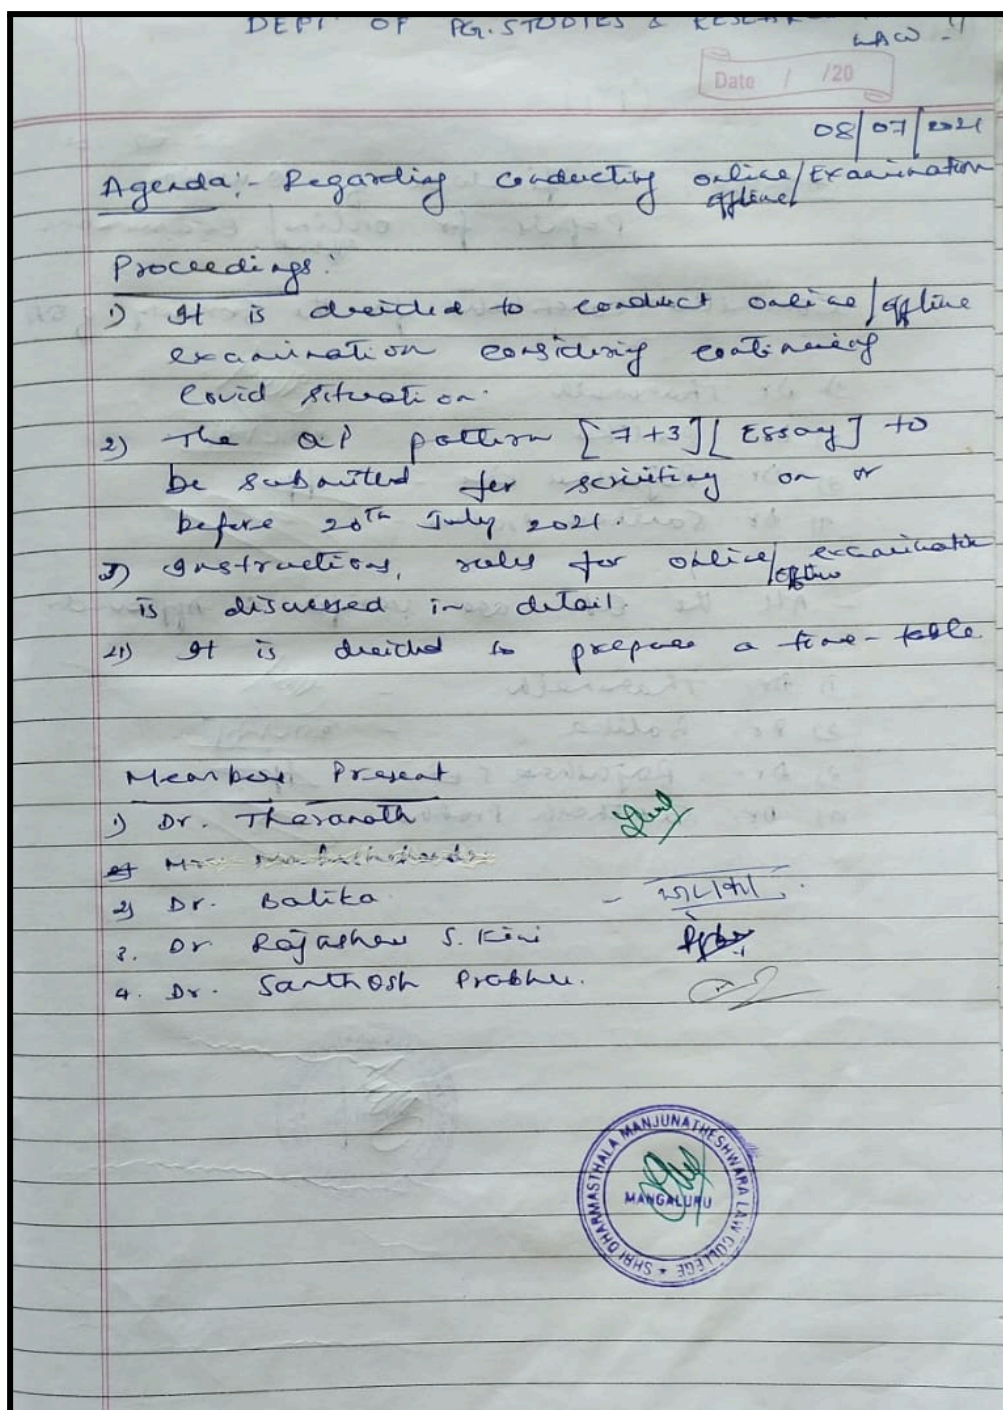 DEPT. OF PG. STUDIES & RESEARCH
LAW -
Date / /20
08/07/2021
Agenda:- Regarding conducting online/Examination
offline/
Proceedings:
1) It is decided to conduct online/offline
examination considering continuing
Covid situation.
2) The QP pattern [7+3][Essay] to
be submitted for scrutiny on or
before 20th July 2021.
3) Instructions, rules for online/ examination
offline
is discussed in detail.
4) It is decided to prepare a time-table.
Members Present
1) Dr. Tharanath
2) Dr. Balika
3. Dr Rajashree S. Kini
4. Dr. Santhosh Prabhu.
SHRI DHARMASTHALA MANJUNATHESHWARA LAW COLLEGE
MANGALURU